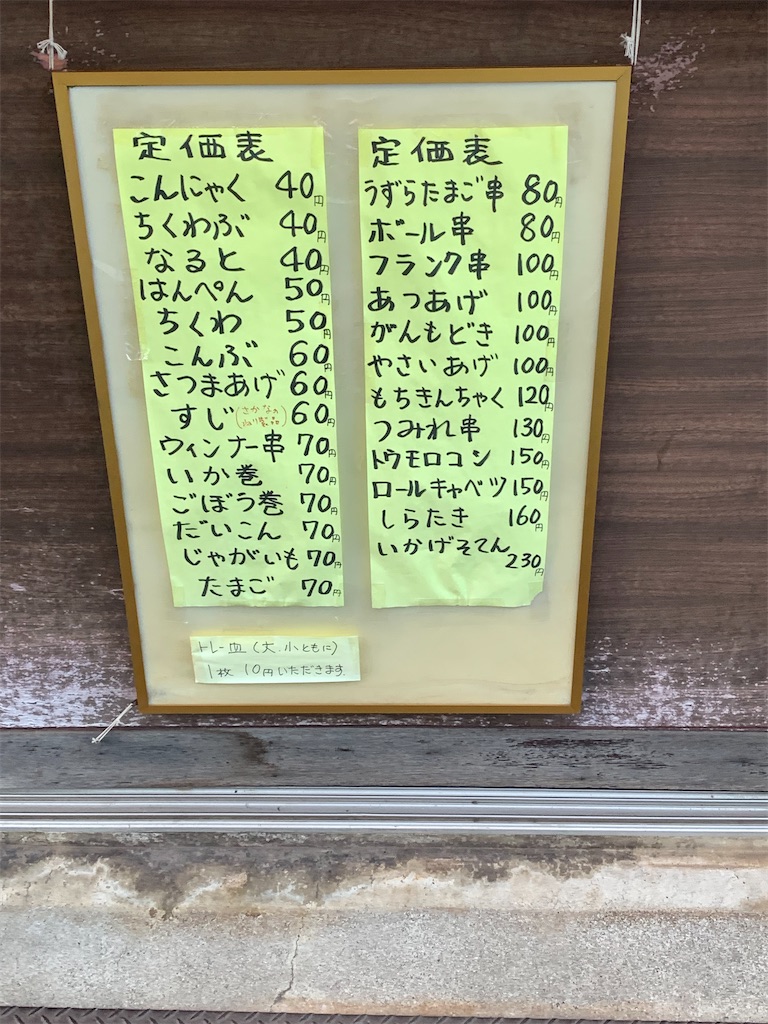 定価表
こんにゃく 40円
ちくわぶ 40円
なると 40円
はんぺん 50円
ちくわ 50円
こんぶ 60円
さつまあげ 60円
すじ(さかなのねり製品) 60円
ウィンナー串 70円
いか巻 70円
ごぼう巻 70円
だいこん 70円
じゃがいも 70円
たまご 70円
定価表
うずらたまご串 80円
ボール串 80円
フランク串 100円
あつあげ 100円
がんもどき 100円
やさいあげ 100円
もちきんちゃく 120円
つみれ串 130円
トウモロコシ 150円
ロールキャベツ 150円
しらたき 160円
いかげそてん
230円
トレー皿(大、小ともに)
1枚 10円いただきます.